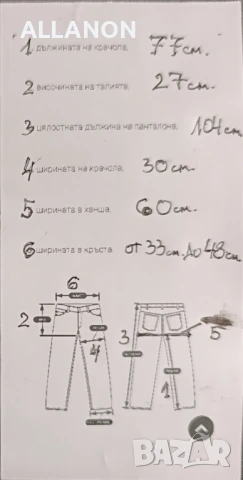 ALLANON
1 дължината на крачола, 77 см.
2 височината на талията, 27 см.
3 цялостната дължина на панталона, 104 см
4 ширината на крачола, 30 см.
5 ширината в ханша, 60 см.
6 ширината в кръста. от 33 см. до 48 см.
6
2
4
3
5
1
BAZAR